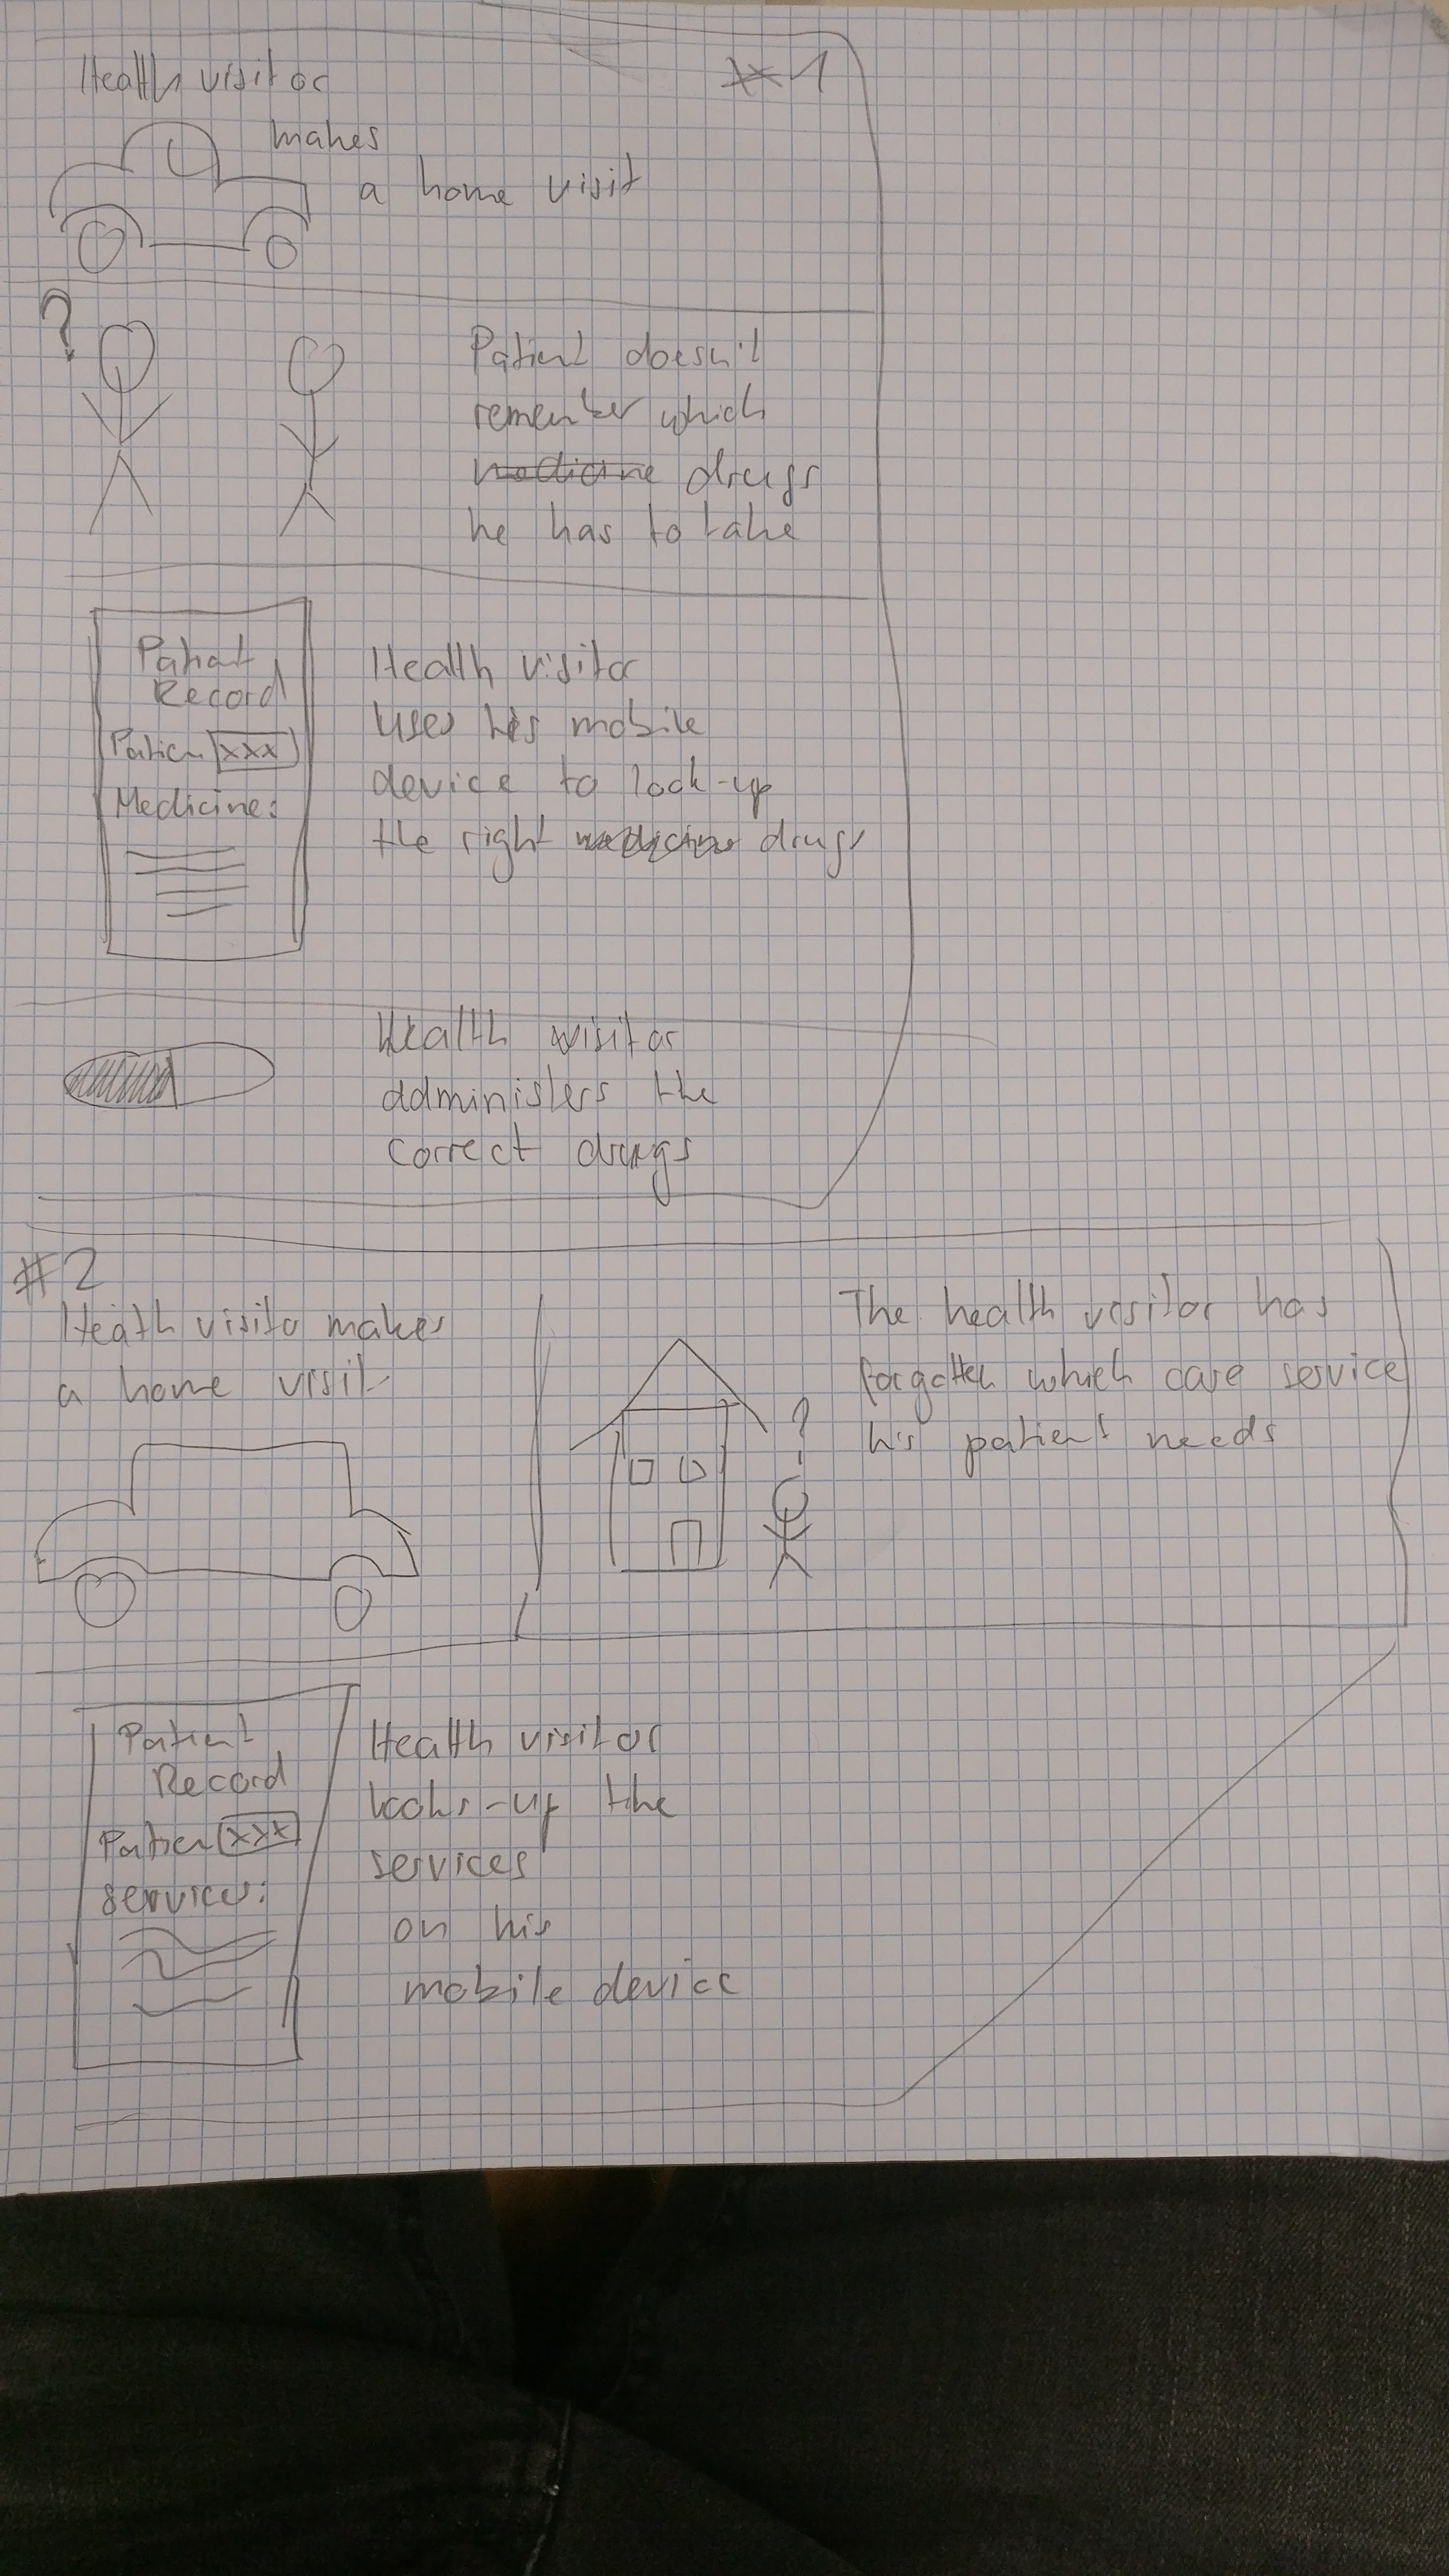 #1
Health visitor
makes
a home visit
?
Patient doesn't
remember which
medicine drugs
he has to take
Patient
Record
Patien xxx
Medicine:
Health visitor
uses his mobile
device to look-up
the right medicine drugs
Health visitor
administers the
correct drugs
#2
Health visitor makes
a home visit
?
The health visitor has
forgotten which care service
his patient needs
Patient
Record
Patien xxx
services:
Health visitor
looks-up the
services
on his
mobile device